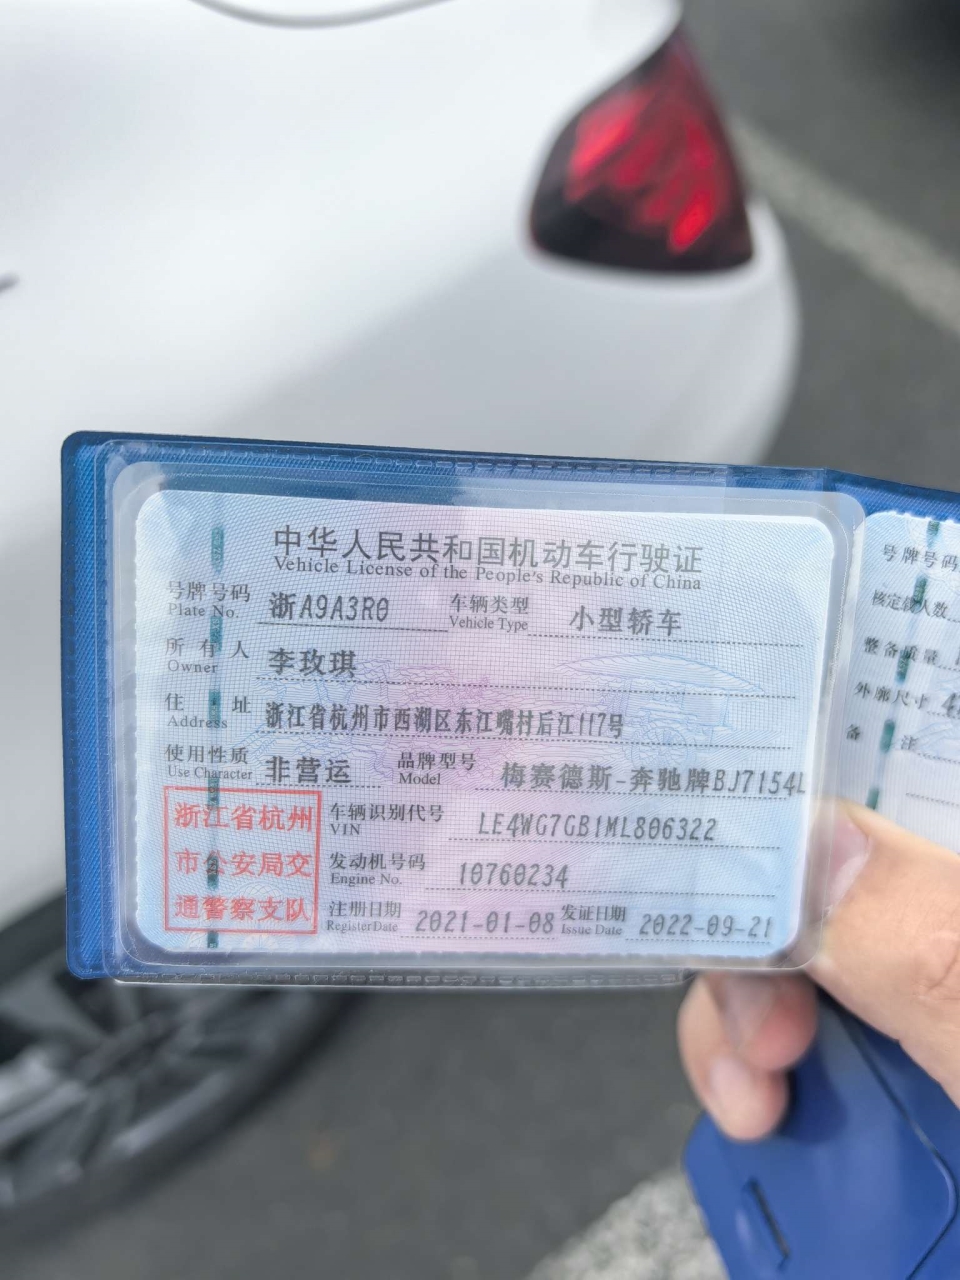 中华人民共和国机动车行驶证
Vehicle License of the People's Republic of China
号牌号码 浙A9A3R0 车辆类型 小型轿车
Plate No. Vehicle Type
所有人 李玫琪
Owner
住址 浙江省杭州市西湖区东江嘴村后江117号
Address
使用性质 非营运 品牌型号 梅赛德斯-奔驰牌BJ7154L
Use Character Model
浙江省杭州
市公安局交
通警察支队
车辆识别代号 LE4WG7GB1ML806322
VIN
发动机号码 10760234
Engine No.
注册日期 2021-01-08 发证日期 2022-09-21
Register Date Issue Date
号牌号码
核定载人数
整备质量
外廓尺寸
备注